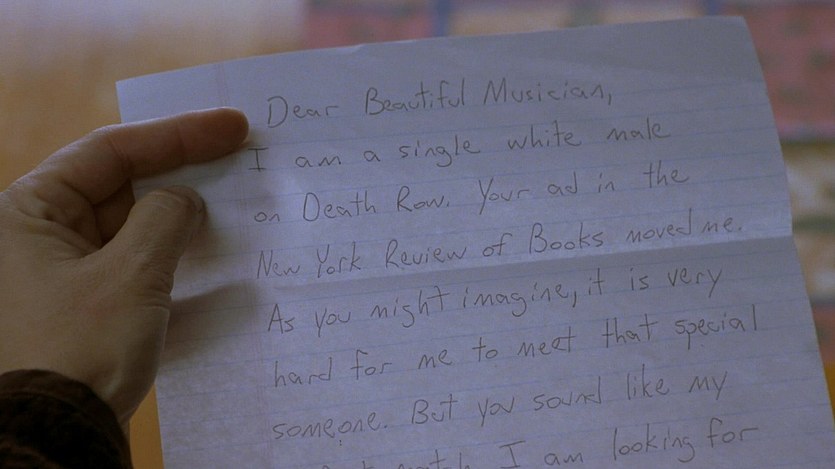 Dear Beautiful Musician,
I am a single white male
on Death Row. Your ad in the
New York Review of Books moved me.
As you might imagine, it is very
hard for me to meet that special
someone. But you sound like my
I am looking for